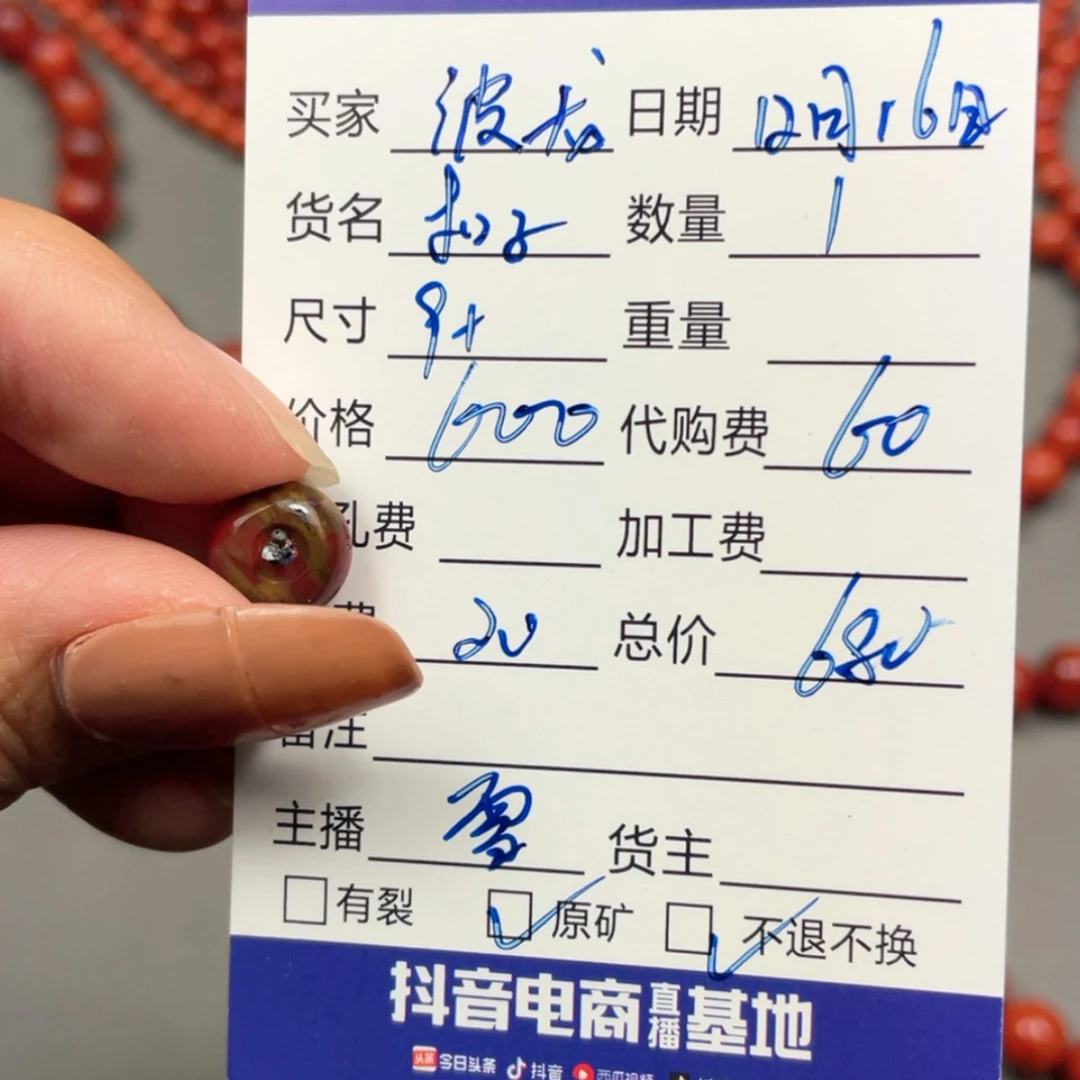 买家 波龙 日期 12月16日
货名 扣子 数量 1
尺寸 9+ 重量
价格 600 代购费 60
孔费 加工费
费 20 总价 680
备注
主播 雪 货主
有裂 原矿 不退不换
抖音电商直播基地
头条 今日头条 抖音 西瓜视频